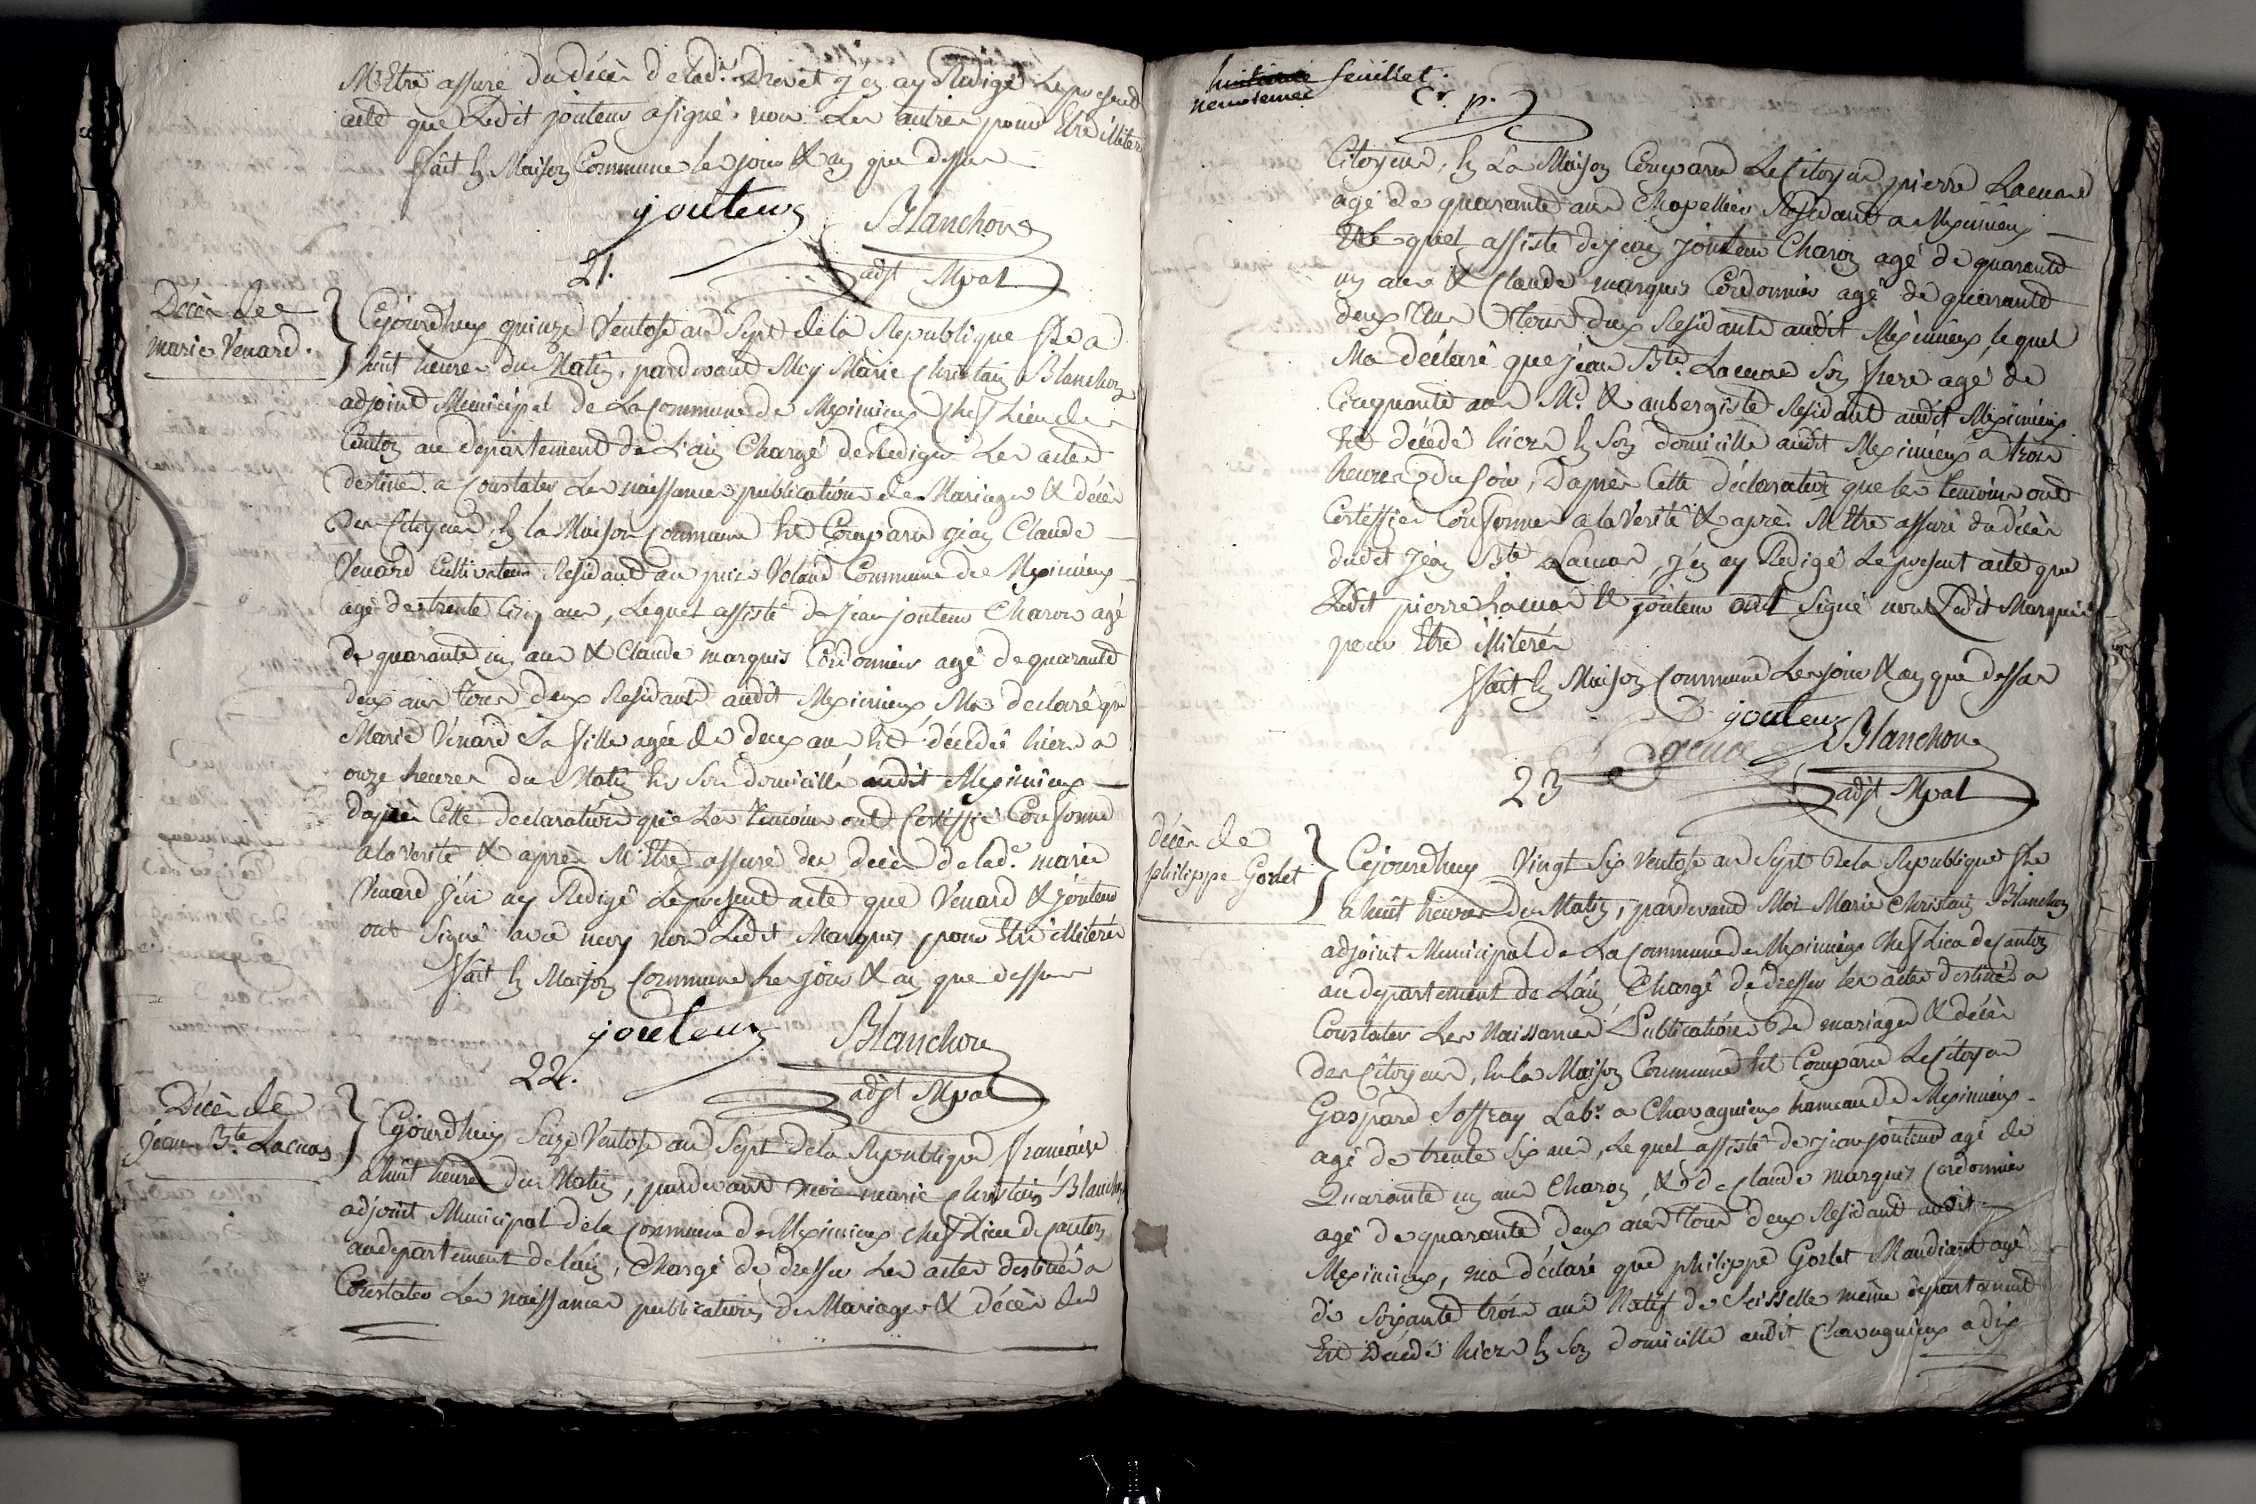 M'Etre assuré du décès de lad.e Drevet j'en ay Redigé Le present
acte que Ledit jouteur a signé. non Les autres pour Etre illiteré
ffait En Maison Commune les jour & an que dessus
jouteur Blanchon
adjt Mpal
21.
Décès de
marie Vénard.
Cejourdhuy quinze Ventose an Sept de la Republique fse a
huit heures du Matin, pardevant Moy Marie Christain Blanchon
adjoint Municipal de La Commune de Meximieux Chef Lieu de
Canton au département de L'ain Chargé de Rediger Les actes
destinés a Constater Les naissances publications de Mariages & décès
Des Citoyens, En la Maison Commune Est Comparu jean Claude
Venard Cultivateur Residant au puits Voland Commune de Meximieux
agé de trente Cinq ans, Lequel assisté de jean jouteur Charon agé
de quarante un ans & Claude marquis Cordonnier agé de quarante
deux ans tous deux Residant audit Meximieux Ma declaré que
Marie Vénard Sa fille agée de deux ans Est décédée hier a
onze heures du Matin En Son domicille audit Meximieux
Daprès Cette declaration que Les temoins ont Certiffié Conforme
a la Verité & après M'Etre assuré du décès de lad.e marie
Venard j'en ay Redigé Le present acte que Venard & jouteur
ont Signé avec moy non Ledit Marquis pour Etre illiteré
ffait En Maison Commune Les jour & an que dessus
jouteur Blanchon
adjt Mpal
22.
Décès de
jean Bte Lacuas
Cejourdhuy Seize Ventose an Sept de la Republique francaise
a huit heures du Matin, pardevant moi marie Christain Blanchon
adjoint Municipal de la Commune de Meximieux chef Lieu de Canton
au departement de lain, Chargé de dresser Les actes destinés a
Constater Les naissances publications de Mariages & décès des
huitieme feuillet.
neuvieme
C. p.
Citoyens, En La Maison Comparu Le Citoyen pierre Lacuas
agé de quarante ans Chapellier Residant a Meximieux
Lequel assisté de jean jouteur Charon agé de quarante
un ans & Claude marquis Cordonnier agé de quarante
deux ans tous deux Residants audit Meximieux, lequel
Ma déclaré que jean Bte Lacuas Son frere agé de
Cinquante ans Md. & aubergiste Residant audit Meximieux
Est décédé hier En Son domicille audit Meximieux a trois
heures du Soir, D'après Cette déclaration que les temoins ont
Certiffiés Conforme a la Verité & après M'Etre assuré du décès
dudit Jean Bte Lacuas, j'en ay Redigé Le present acte que
Ledit pierre Lacuas & jouteur ont Signé non Ledit Marquis
pour Etre illiteré
ffait En Maison Commune Les jour & an que dessus
jouteur Blanchon
adjt Mpal
23
décès de
philippe Gorlet
Cejourdhuy Vingt Six Ventose an Sept de la Republique fse
a huit heures du Matin, pardevant Moi Marie Christain Blanchon
adjoint Municipal de La Commune de Meximieux Chef Lieu de Canton
au departement de L'ain, Chargé de dresser les actes destinés a
Constater Les Naissances Publications de mariages & décès
Des Citoyens, En la Maison Commune Est Comparu Le Citoyen
Gaspard Joffray Labr. a Chavagnieux hameau de Meximieux
agé de trente Six ans, Lequel assisté de jean jouteur agé de
Quarante un ans Charon, & de Claude marquis Cordonnier
agé de quarante deux ans tous deux Residant audit
Meximieux, ma déclaré que philippe Gorlet Mandiant agé
de Soixante trois ans Natif de Seisselle même departement
Est Décédé hier En Son domicille audit Chavagnieux a dix